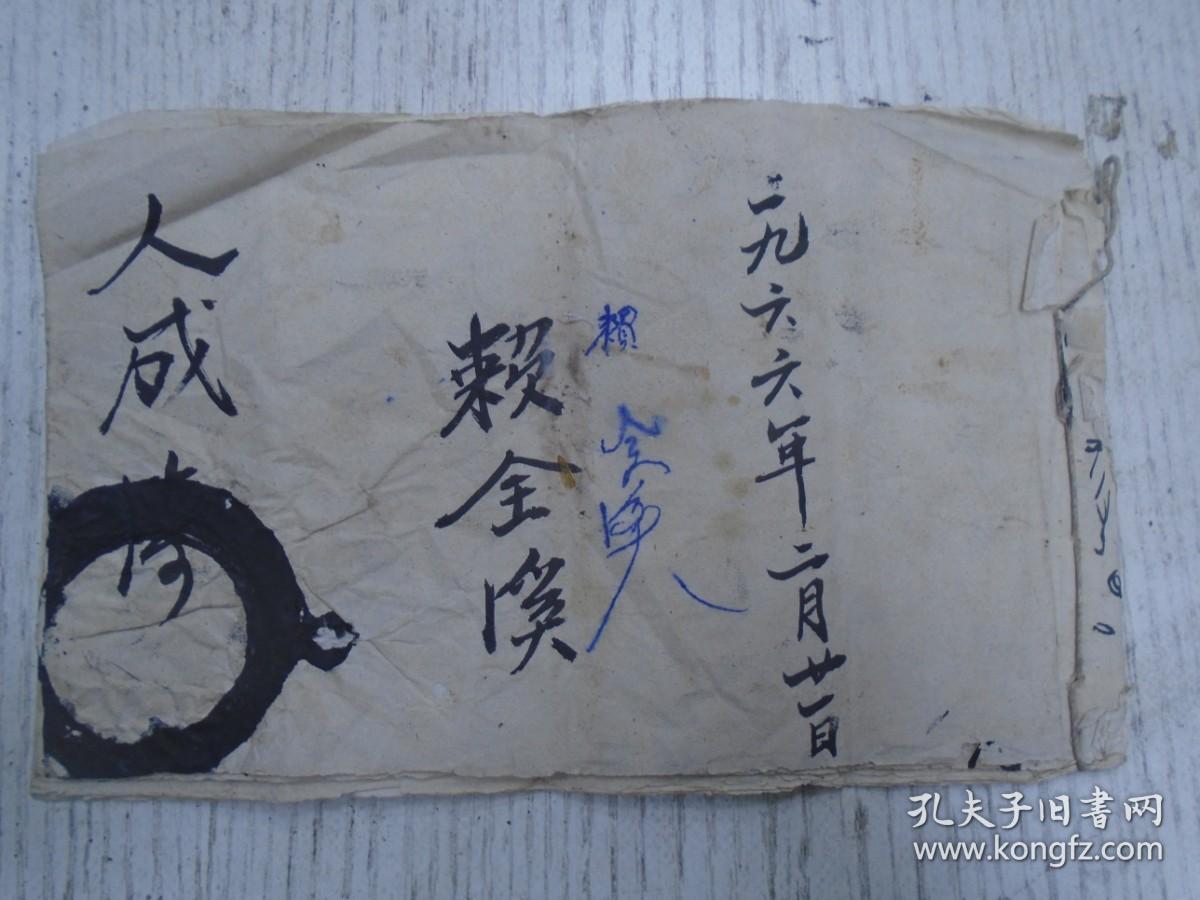 一九六六年二月廿一日
賴
賴全溪
人成
孔夫子旧书网
www.kongfz.com